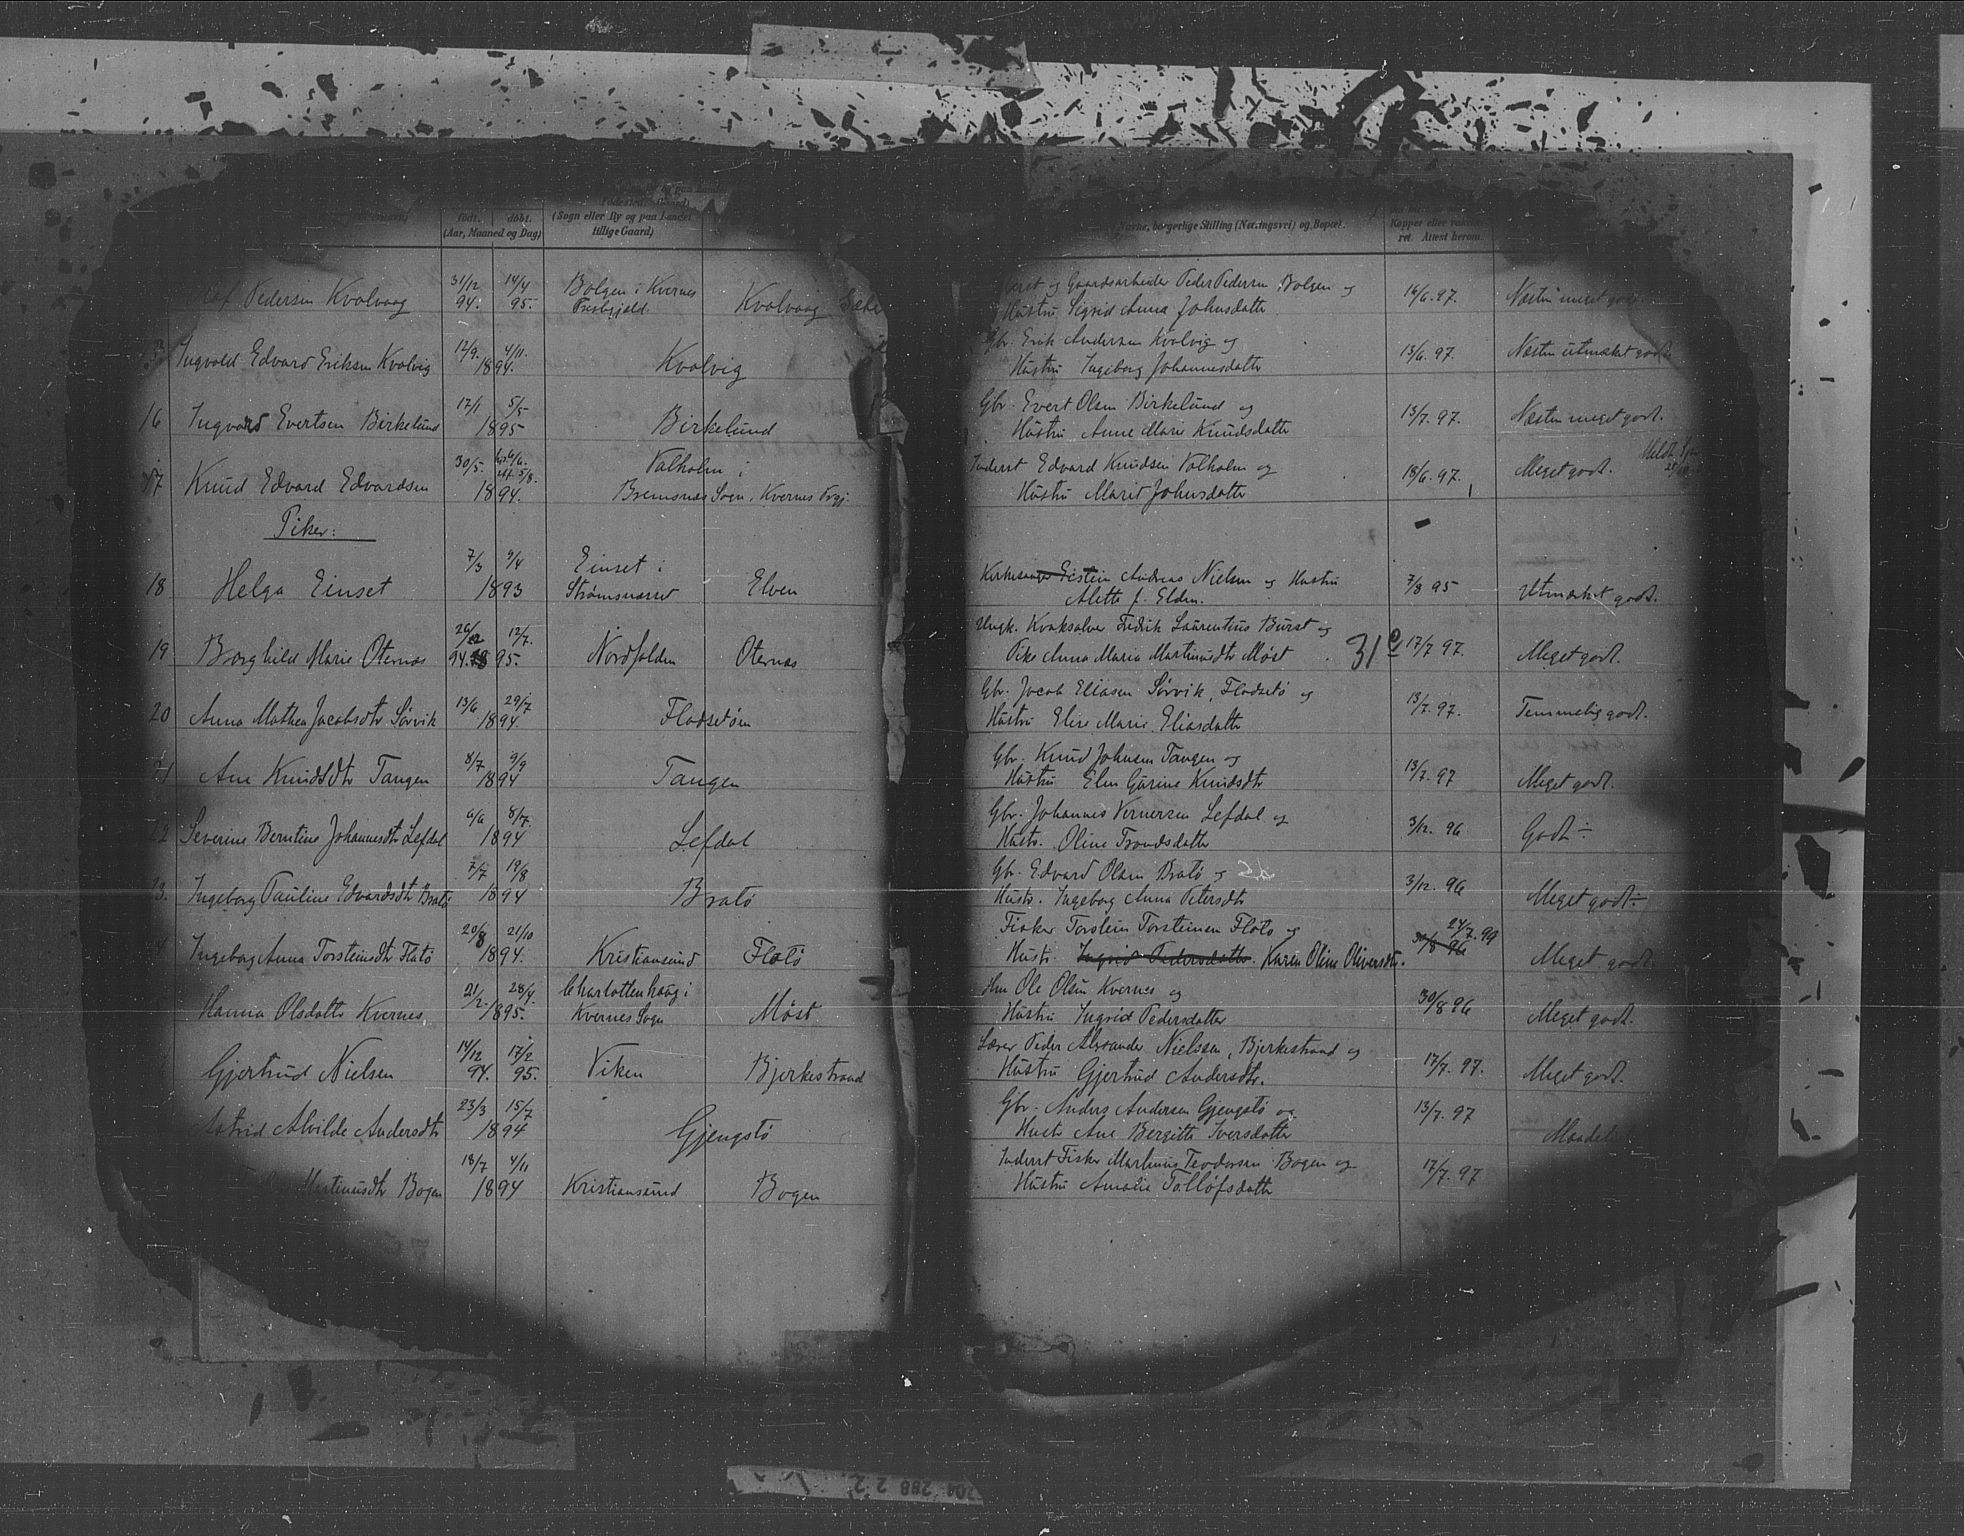 født. døbt. (Sogn eller By og paa Landet
(Aar, Maaned og Dag) tillige Gaard)
Navne, borgerlige Stilling (Næringsvei) og Bopæl.
Kopper eller
ret. Attest herom.
Pedersen Kvolvaag 31/12 94. 14/4 95. Bolgen i Kvernes Kvolvaag
og Gaardsarbeider Peder Pedersen Bolgen og 14/6 97. Næsten meget
Hustru Sigrid Anna Johnsdatter
Ingvald Edvard Eriksen Kvolvig 12/9. 4/11. 1894. Kvolvig
Gbr. Erik Andersen Kvolvig og 13/6. 97. Næsten utmærket godt.
Hustru Ingeborg Johannesdatter
16 Ingvard Evertsen Birkelund 17/1 5/5 1895 Birkelund
Gbr. Evert Olsen Birkelund og 13/7. 97. Næsten meget godt.
Hustru Anne Marie Knudsdatter
17 Knud Edvard Edvardsen 30/5. 1894. Valholm i
Bremsnes Sogn, Kvernes
Edvard Knudsen Valholm og 18/6. 97. Meget godt.
Hustru Marit Johnsdatter
Piker:
18 Helga Einset 7/3 9/4 1893 Einset i
Strømsnesset Elven
Kirkesanger Eistein Andreas Nielsen og Hustru 7/8 95 Utmærket godt.
Alette f. Elden.
19 Borghild Marie Oternes 12/7. 94. 95. Nordfolden Oternes
Ungk. Kvaksalver Fredrik Laurentius Burst og
Pike Anna Maria Martinusdtr Møst 31 17/7 97. Meget godt.
20 Anna Mathea Jacobsdtr Sørvik 13/6 29/7 1894. Flodsetøen
Gbr. Jacob Eliasen Sørvik, Flodsetø og 13/7. 97. Temmelig godt.
Hustru Elise Marie Eliasdatter
21 Ane Knudsdtr Tangen 8/7 9/9 1894 Tangen
Gbr. Knud Johnsen Tangen og 13/7. 97 Meget godt.
Hustru Elen Gurine Knudsdtr
22 Severine Berntine Johannesdtr Lefdal 6/6 8/7. 1894 Lefdal
Gbr. Johannes Vernersen Lefdal og 3/12. 96 Godt ÷
Hustr. Oline Trondsdatter
23. Ingeborg Pauline Edvardsdtr Bratø 7/7 19/8 1894 Bratø
Gbr. Edvard Olsen Bratø og 3/12. 96 Meget godt ÷
Hustr. Ingeborg Anna Petersdtr
Ingeborg Anna Torsteinsdtr Flatø 20/8 21/10 1894. Kristiansund Flatø
Fisker Torstein Torsteinsen Flatø og 24/7. 99
Hustr. Ingrid Pedersdatter. Karen Oline Oliversdtr. 30/8 96 Meget godt
Hanna Olsdatter Kvernes 21/2. 28/4. 1895. Charlottenhaug i
Kvernes Sogn Møst
Ole Olsen Kvernes og 30/8 96 Meget godt.
Hustru Ingrid Pedersdatter
Gjertrud Nielsen 14/12 94. 17/2 95. Viken Bjerkestrand
Lærer Peder Alexander Nielssen, Bjerkestrand og 17/7. 97. Meget godt.
Hustru Gjertrud Andersdtr.
Astrid Alvilde Andersdtr 23/3 15/7 1894 Gjengstø
Gbr. Anders Andersen Gjengstø og 13/7. 97
Hustr Ane Bergitte Iversdatter
Martinusdtr Bogen 18/7 4/11 1894 Kristiansund Bogen
Inderst Fisker Martinus Teodorsen Bogen og 17/7. 97
Hustru Amalie Tollofsdatter
204 288 2 2